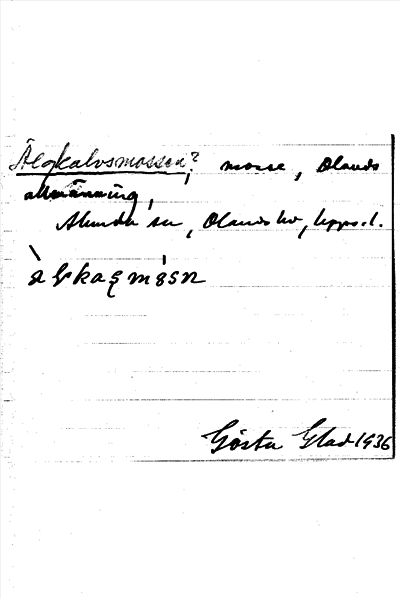 Älgkalvsmossen?, mosse, Olands
allmänning,
Alunda sn, Olands hd, Upps. l.
Gösta Glad 1936